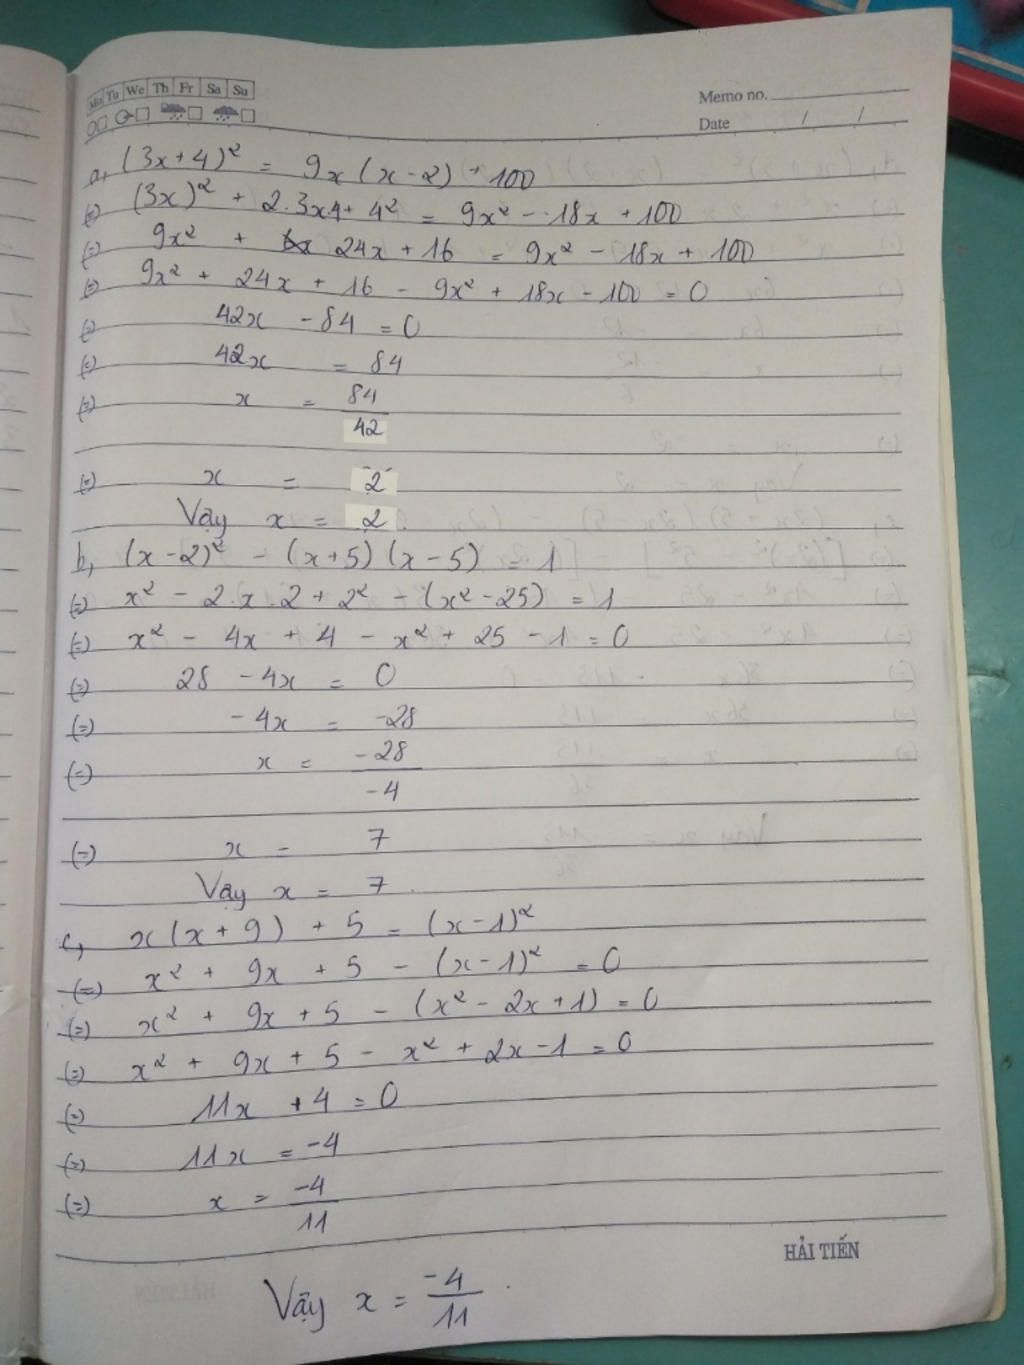 Mo Tu We Th Fr Sa Su
Memo no.
Date / /
a, (3x+4)² = 9x(x-2) + 100
(=) (3x)² + 2.3x4 + 4² = 9x² - 18x + 100
(=) 9x² + 24x + 16 = 9x² - 18x + 100
(=) 9x² + 24x + 16 - 9x² + 18x - 100 = 0
(=) 42x - 84 = 0
(=) 42x = 84
(=) x = 84/42
(=) x = 2
Vậy x = 2.
b, (x-2)² - (x+5)(x-5) = 1
(=) x² - 2.x.2 + 2² - (x²-25) = 1
(=) x² - 4x + 4 - x² + 25 - 1 = 0
(=) 28 - 4x = 0
(=) -4x = -28
(=) x = -28/-4
(=) x = 7
Vậy x = 7.
c, x(x+9) + 5 = (x-1)²
(=) x² + 9x + 5 - (x-1)² = 0
(=) x² + 9x + 5 - (x² - 2x + 1) = 0
(=) x² + 9x + 5 - x² + 2x - 1 = 0
(=) 11x + 4 = 0
(=) 11x = -4
(=) x = -4/11
HẢI TIẾN
Vậy x = -4/11.